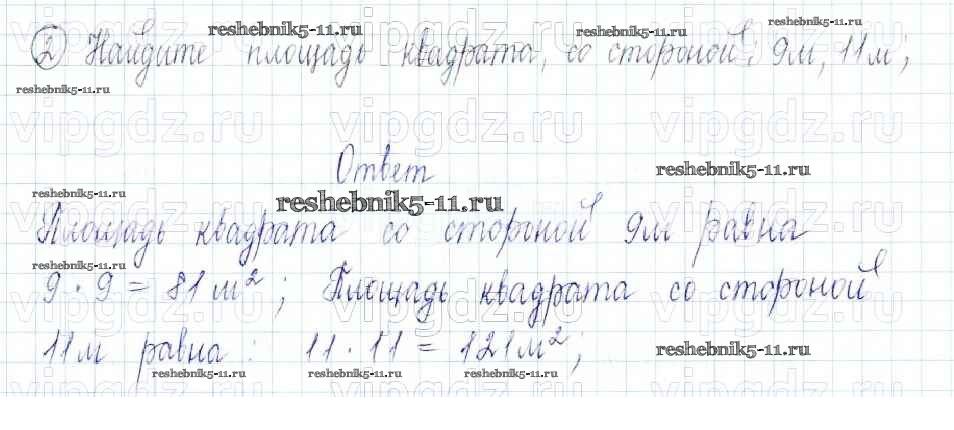 reshebnik5-11.ru
reshebnik5-11.ru
② Найдите площадь квадрата, со стороной: 9м, 11м;
reshebnik5-11.ru
vipgdz.ru vipgdz.ru vipgdz.ru
Ответ
reshebnik5-11.ru
reshebnik5-11.ru
reshebnik5-11.ru
vipgdz.ru vipgdz.ru vipgdz.ru
Площадь квадрата со стороной 9м равна
reshebnik5-11.ru
9 · 9 = 81 м²; Площадь квадрата со стороной
vipgdz.ru vipgdz.ru vipgdz.ru
11м равна: 11 · 11 = 121м²;
reshebnik5-11.ru
reshebnik5-11.ru reshebnik5-11.ru reshebnik5-11.ru reshebnik5-11.ru
vipgdz.ru vipgdz.ru vipgdz.ru